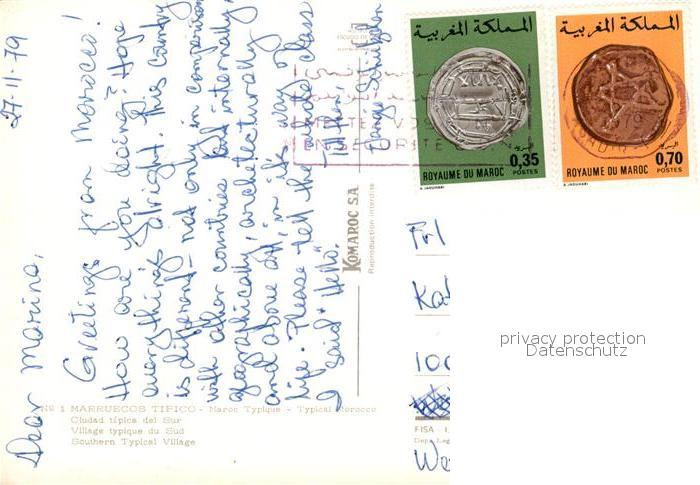 27-11-79
Dear Marina,
Greetings from Morocco!
How are you doing? Hope
everything's alright. This country
is different - not only in comparison
with other countries but internally,
geographically, architecturally
and above all, in its way of
life. Please tell the whole class
I said "Hello".
Till then,
KOMAROC S.A.
Reproduction interdite
Nº 1 MARRUECOS TIPICO - Maroc Typique - Typical Morocco
Ciudad típica del Sur
Village typique du Sud
Southern Typical Village
المملكة المغربية
البريد
0,35
ROYAUME DU MAROC POSTES
المملكة المغربية
البريد
0,70
ROYAUME DU MAROC POSTES
EN SECURITE
Frl
Ka
100
We
FISA - I.
privacy protection
Datenschutz